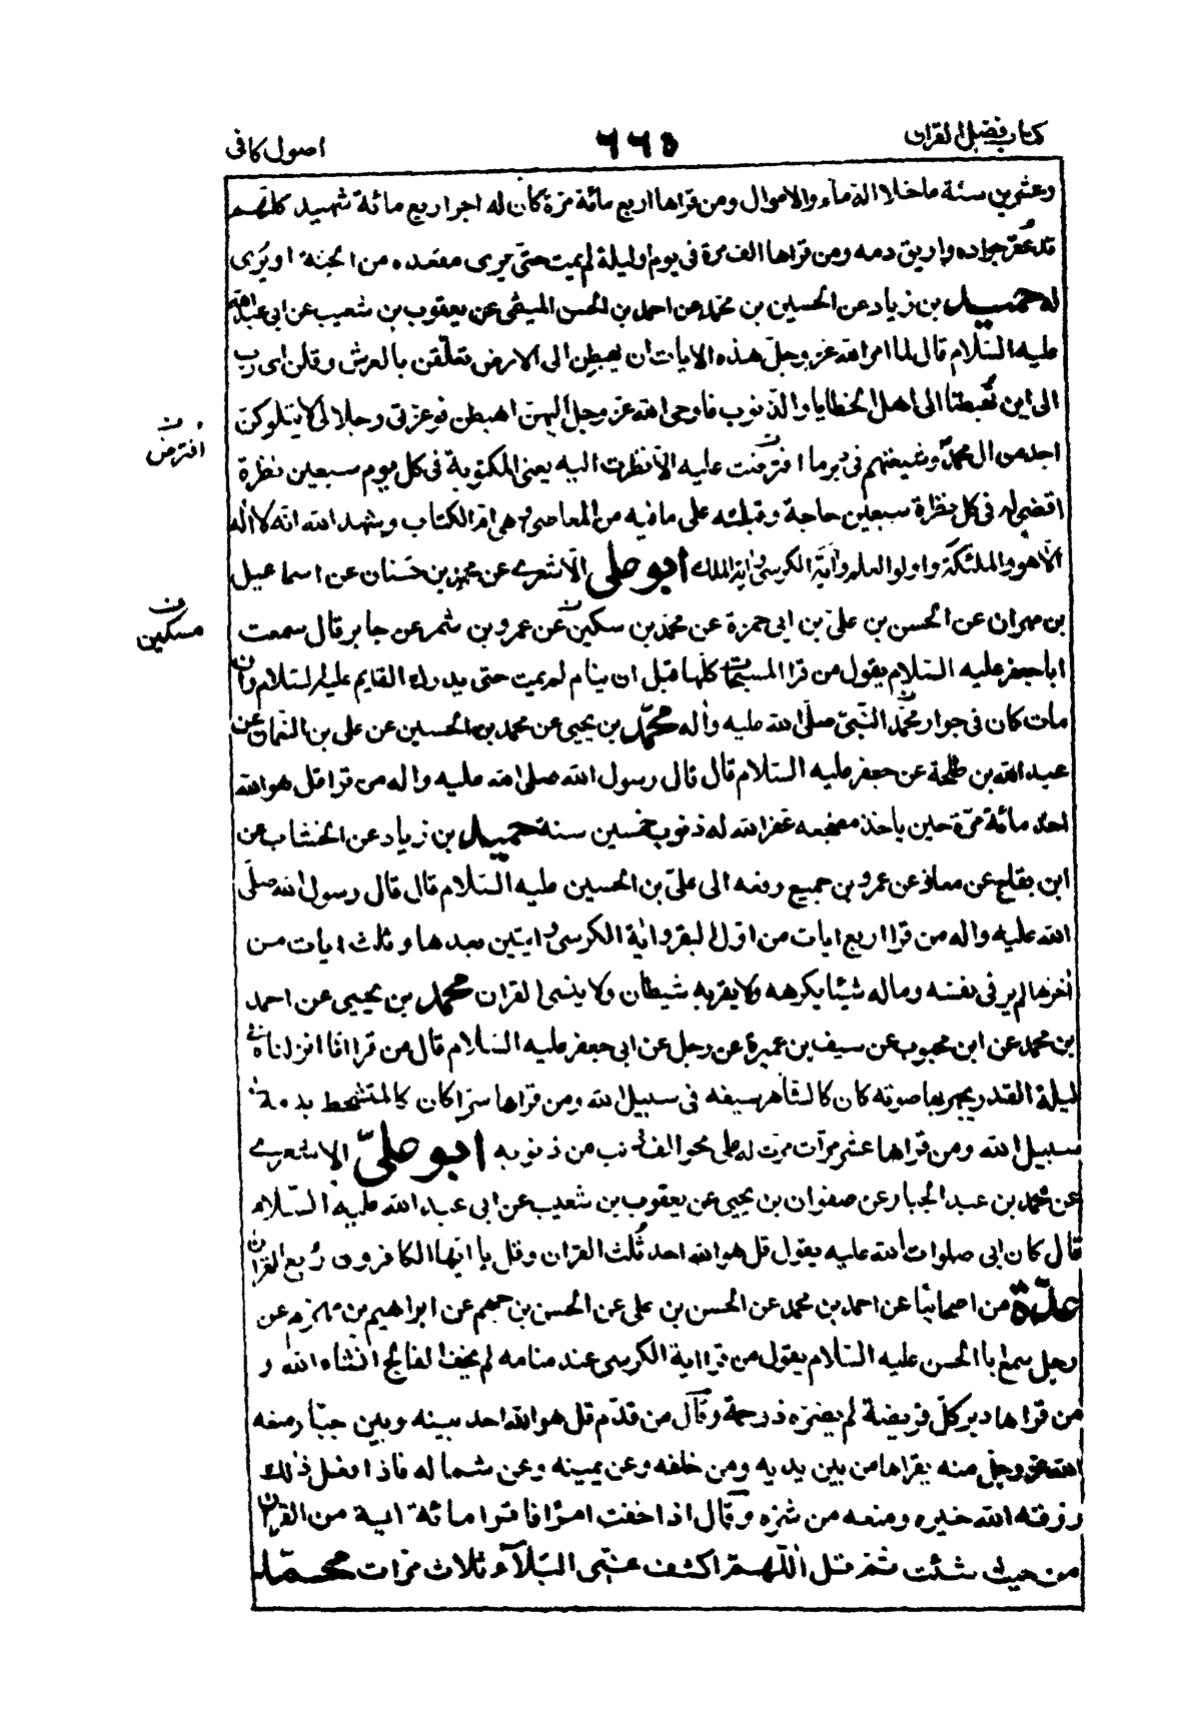 كتاب فضل القران
٦٦٥
اصول كافى
وعشرين سنة ما خلا الدماء والاموال ومن قراها اربع مائة مرة كان له اجر اربع مائة شهيد كلهم
قد عُقر جواده واريق دمه ومن قراها الف مرة فى يوم اوليلة لم يمت حتى يرى مقعده من الجنة او يُرى
له حميد بن زياد عن الحسين بن محمد عن احمد بن الحسن الميثمى عن يعقوب بن شعيب عن ابى عبد الله
عليه السّلام قال لما امر الله عز وجلّ هذه الايات ان يهبطن الى الارض تعلّقن بالعرش وقلن اى رب
الى اين تُهبطنا الى اهل الخطايا والذنوب فاوحى الله عز وجل اليهن اهبطن فوعزتى وجلالى لا يتلوكن
احد من ال محمد وشيعتهم فى دبر ما افترضت عليه الا نظرت اليه يعنى المكتوبة فى كل يوم سبعين نظرة
افترض
اقضى له فى كل نظرة سبعين حاجة وقبلته على ما فيه من المعاصى وهى ام الكتاب وشهد الله انه لا اله
الا هو والملئكة واولوا العلم واية الكرسى واية الملك ابو على الاشعرى عن محمد بن حسّان عن اسماعيل
بن مهران عن الحسن بن على بن ابى حمزة عن محمد بن سكين عن عمرو بن شمر عن جابر قال سمعت
مسكين
ابا جعفر عليه السّلام يقول من قرا المسبحات كلّها قبل ان ينام لم يمت حتى يدرك القايم عليه السّلام وان
مات كان فى جوار محمّد النّبىّ صلّى الله عليه واله محمّد بن يحيى عن محمد بن الحسين عن على بن النعمان عن
عبد الله بن طلحة عن جعفر عليه السّلام قال قال رسول الله صلى الله عليه واله من قرا قل هو الله
احد مائة مرّة حين ياخذ مضجعه غفر الله له ذنوب خمسين سنة حميد بن زياد عن الخشاب عن
ابن بقاح عن معاذ عن عمرو بن جميع رفعه الى علىّ بن الحسين عليه السّلام قال قال رسول الله صلّى
الله عليه واله من قرا اربع ايات من اوّل البقر واية الكرسى وايتين بعدها وثلث ايات من
اخرها لم ير فى نفسه وماله شيئا يكرهه ولا يقربه شيطان ولا ينسى القران محمد بن يحيى عن احمد
بن محمد عن ابن محبوب عن سيف بن عميرة عن رجل عن ابى جعفر عليه السّلام قال من قرا انا انزلناه فى
ليلة القدر يجهر بها صوته كان كالشاهر سيفه فى سبيل الله ومن قراها سرّا كان كالمتشحط بدمه فى
سبيل الله ومن قراها عشر مرّات مرّت له على محو الف ذنب من ذنوبه ابو علىّ الاشعرى
عن محمد بن عبد الجبار عن صفوان بن يحيى عن يعقوب بن شعيب عن ابى عبد الله عليه السّلام
قال كان ابى صلوات الله عليه يقول قل هو الله احد ثُلث القران وقل يا ايها الكافرون رُبع القران
عدّة من اصحابنا عن احمد بن محمد عن الحسن بن على عن الحسن بن جهم عن ابراهيم بن مهزم عن
رجل سمع ابا الحسن عليه السّلام يقول من قرا اية الكرسى عند منامه لم يخف الفالج انشاء الله و
من قراها دبر كلّ فريضة لم يضرّه ذو حمة وقال من قدّم قل هو الله احد بينه وبين جبّار منعه
الله عز وجل منه يقراها من بين يديه ومن خلفه وعن يمينه وعن شماله فاذا فعل ذلك
رزقه الله خيره ومنعه من شرّه وقال اذا خفت امرًا فاقرا مائة اية من القران
من حيث شئت ثم قل اللّهمّ اكشف عنّى البَلآء ثلاث مرّات محمّد